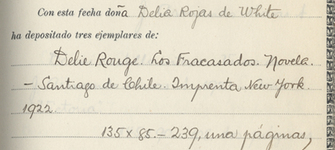 Con esta fecha doña Delia Rojas de White
ha depositado tres ejemplares de:
Delie Rouge. Los Fracasados. Novela.
– Santiago de Chile. Imprenta New York.
1922.
135 x 85. – 239, una páginas,